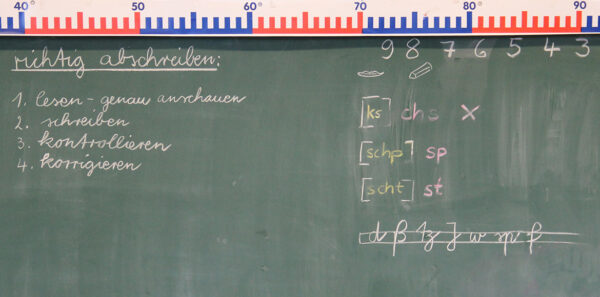 40° 50° 60° 70° 80° 90
9 8 7 6 5 4 3
richtig abschreiben:
1. lesen - genau anschauen
2. schreiben
3. kontrollieren
4. korrigieren
[ks] chs x
[schp] sp
[scht] st